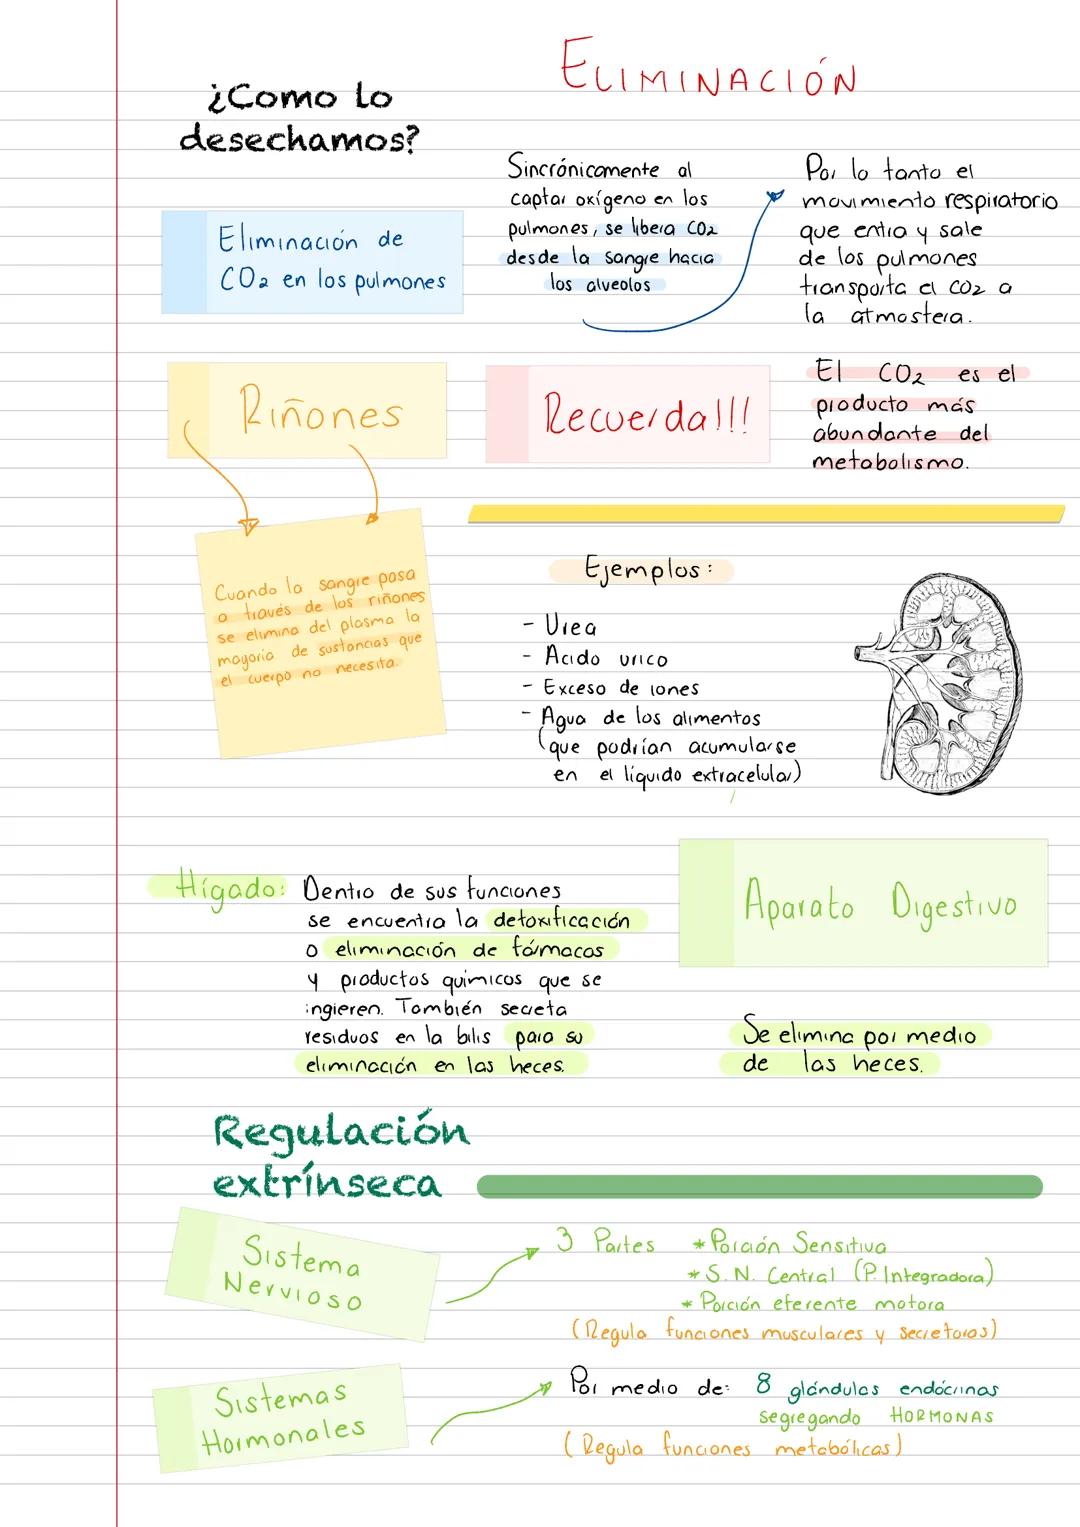 ELIMINACIÓN
¿Como lo
desechamos?
Eliminación de
CO2 en los pulmones
Sincrónicamente al
captar oxígeno en los
pulmones, se libera CO2
desde la sangre hacia
los alveolos
Por lo tanto el
movimiento respiratorio
que entra y sale
de los pulmones
transporta el CO2 a
la atmosfera.
Riñones
Recuerda!!!
El CO2 es el
producto más
abundante del
metabolismo.
Cuando la sangre pasa
a través de los riñones
se elimina del plasma la
mayoria de sustancias que
el cuerpo no necesita.
Ejemplos:
- Urea
- Acido urico
- Exceso de iones
- Agua de los alimentos
(que podrían acumularse
en el líquido extracelular)
Hígado: Dentro de sus funciones
se encuentra la detoxificación
o eliminación de fármacos
y productos químicos que se
ingieren. También secreta
residuos en la bilis para su
eliminación en las heces.
Aparato Digestivo
Se elimina por medio
de las heces.
Regulación
extrínseca
Sistema
Nervioso
3 Partes * Porción Sensitiva
* S.N. Central (P. Integradora)
* Porción eferente motora
(Regula funciones musculares y secretoras)
Sistemas
Hormonales
Por medio de: 8 glándulas endócrinas
segregando HORMONAS
(Regula funciones metabólicas)